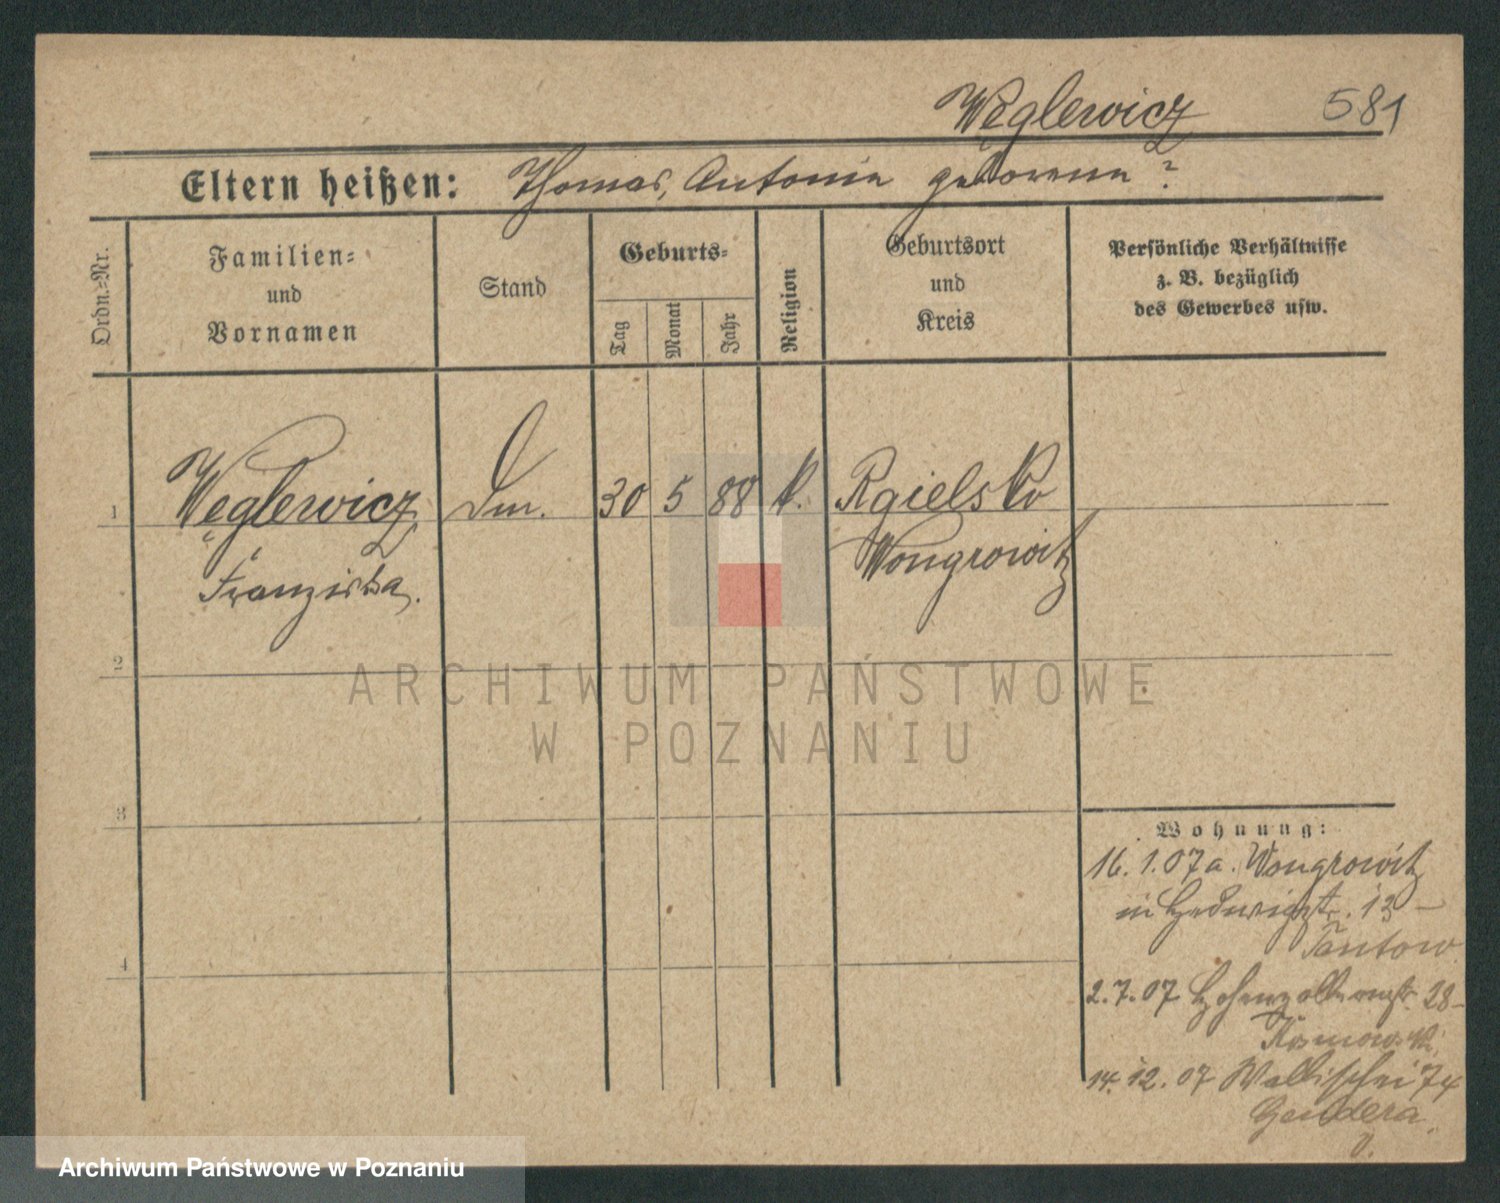 Węglewicz 581
Eltern heißen: Thomas, Antonie geborene?
Ordn.=Nr.
Familien=
und
Vornamen
Stand
Geburts=
Tag
Monat
Jahr
Religion
Geburtsort
und
Kreis
Persönliche Verhältnisse
z. B. bezüglich
des Gewerbes usw.
1 Węglewicz Dm. 30 5 88 k. Rgielsko
Franziska. Wongrowitz
2
3
4
Wohnung:
16.1.07 a. Wongrowitz
in Hedwigstr. 13 –
Tantow
2.7.07 Hohenzollernstr. 28 –
14.12.07 Wallischei 74
Gendera.
ARCHIWUM PAŃSTWOWE
W POZNANIU
Archiwum Państwowe w Poznaniu